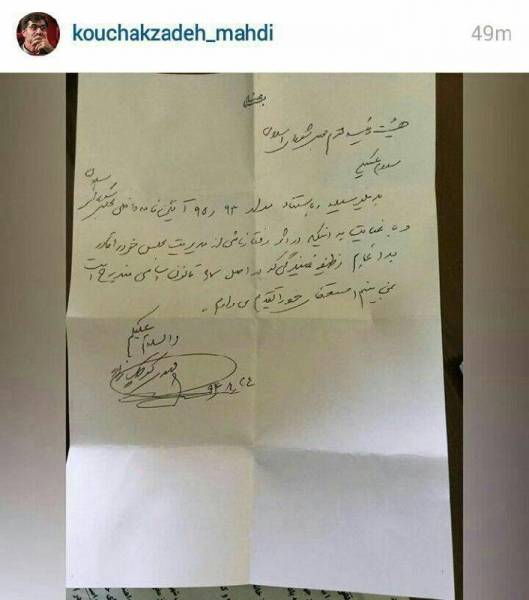 kouchakzadeh_mahdi
49m
بسمه تعالی
هیئت رئیسه محترم مجلس شورای اسلامی
سلام علیکم
بدینوسیله به استناد مواد ۹۳ و ۹۵ آئین نامه داخلی مجلس شورای اسلامی
و با عنایت به اینکه در اثر رفتار ناشی از مدیریت مجلس خود را قادر
به انجام وظیفه نمایندگی که در اصل ۶۷ قانون اساسی مندرج است
نمی بینم استعفای خود را تقدیم می دارم.
والسلام علیکم
مهدی کوچک زاده